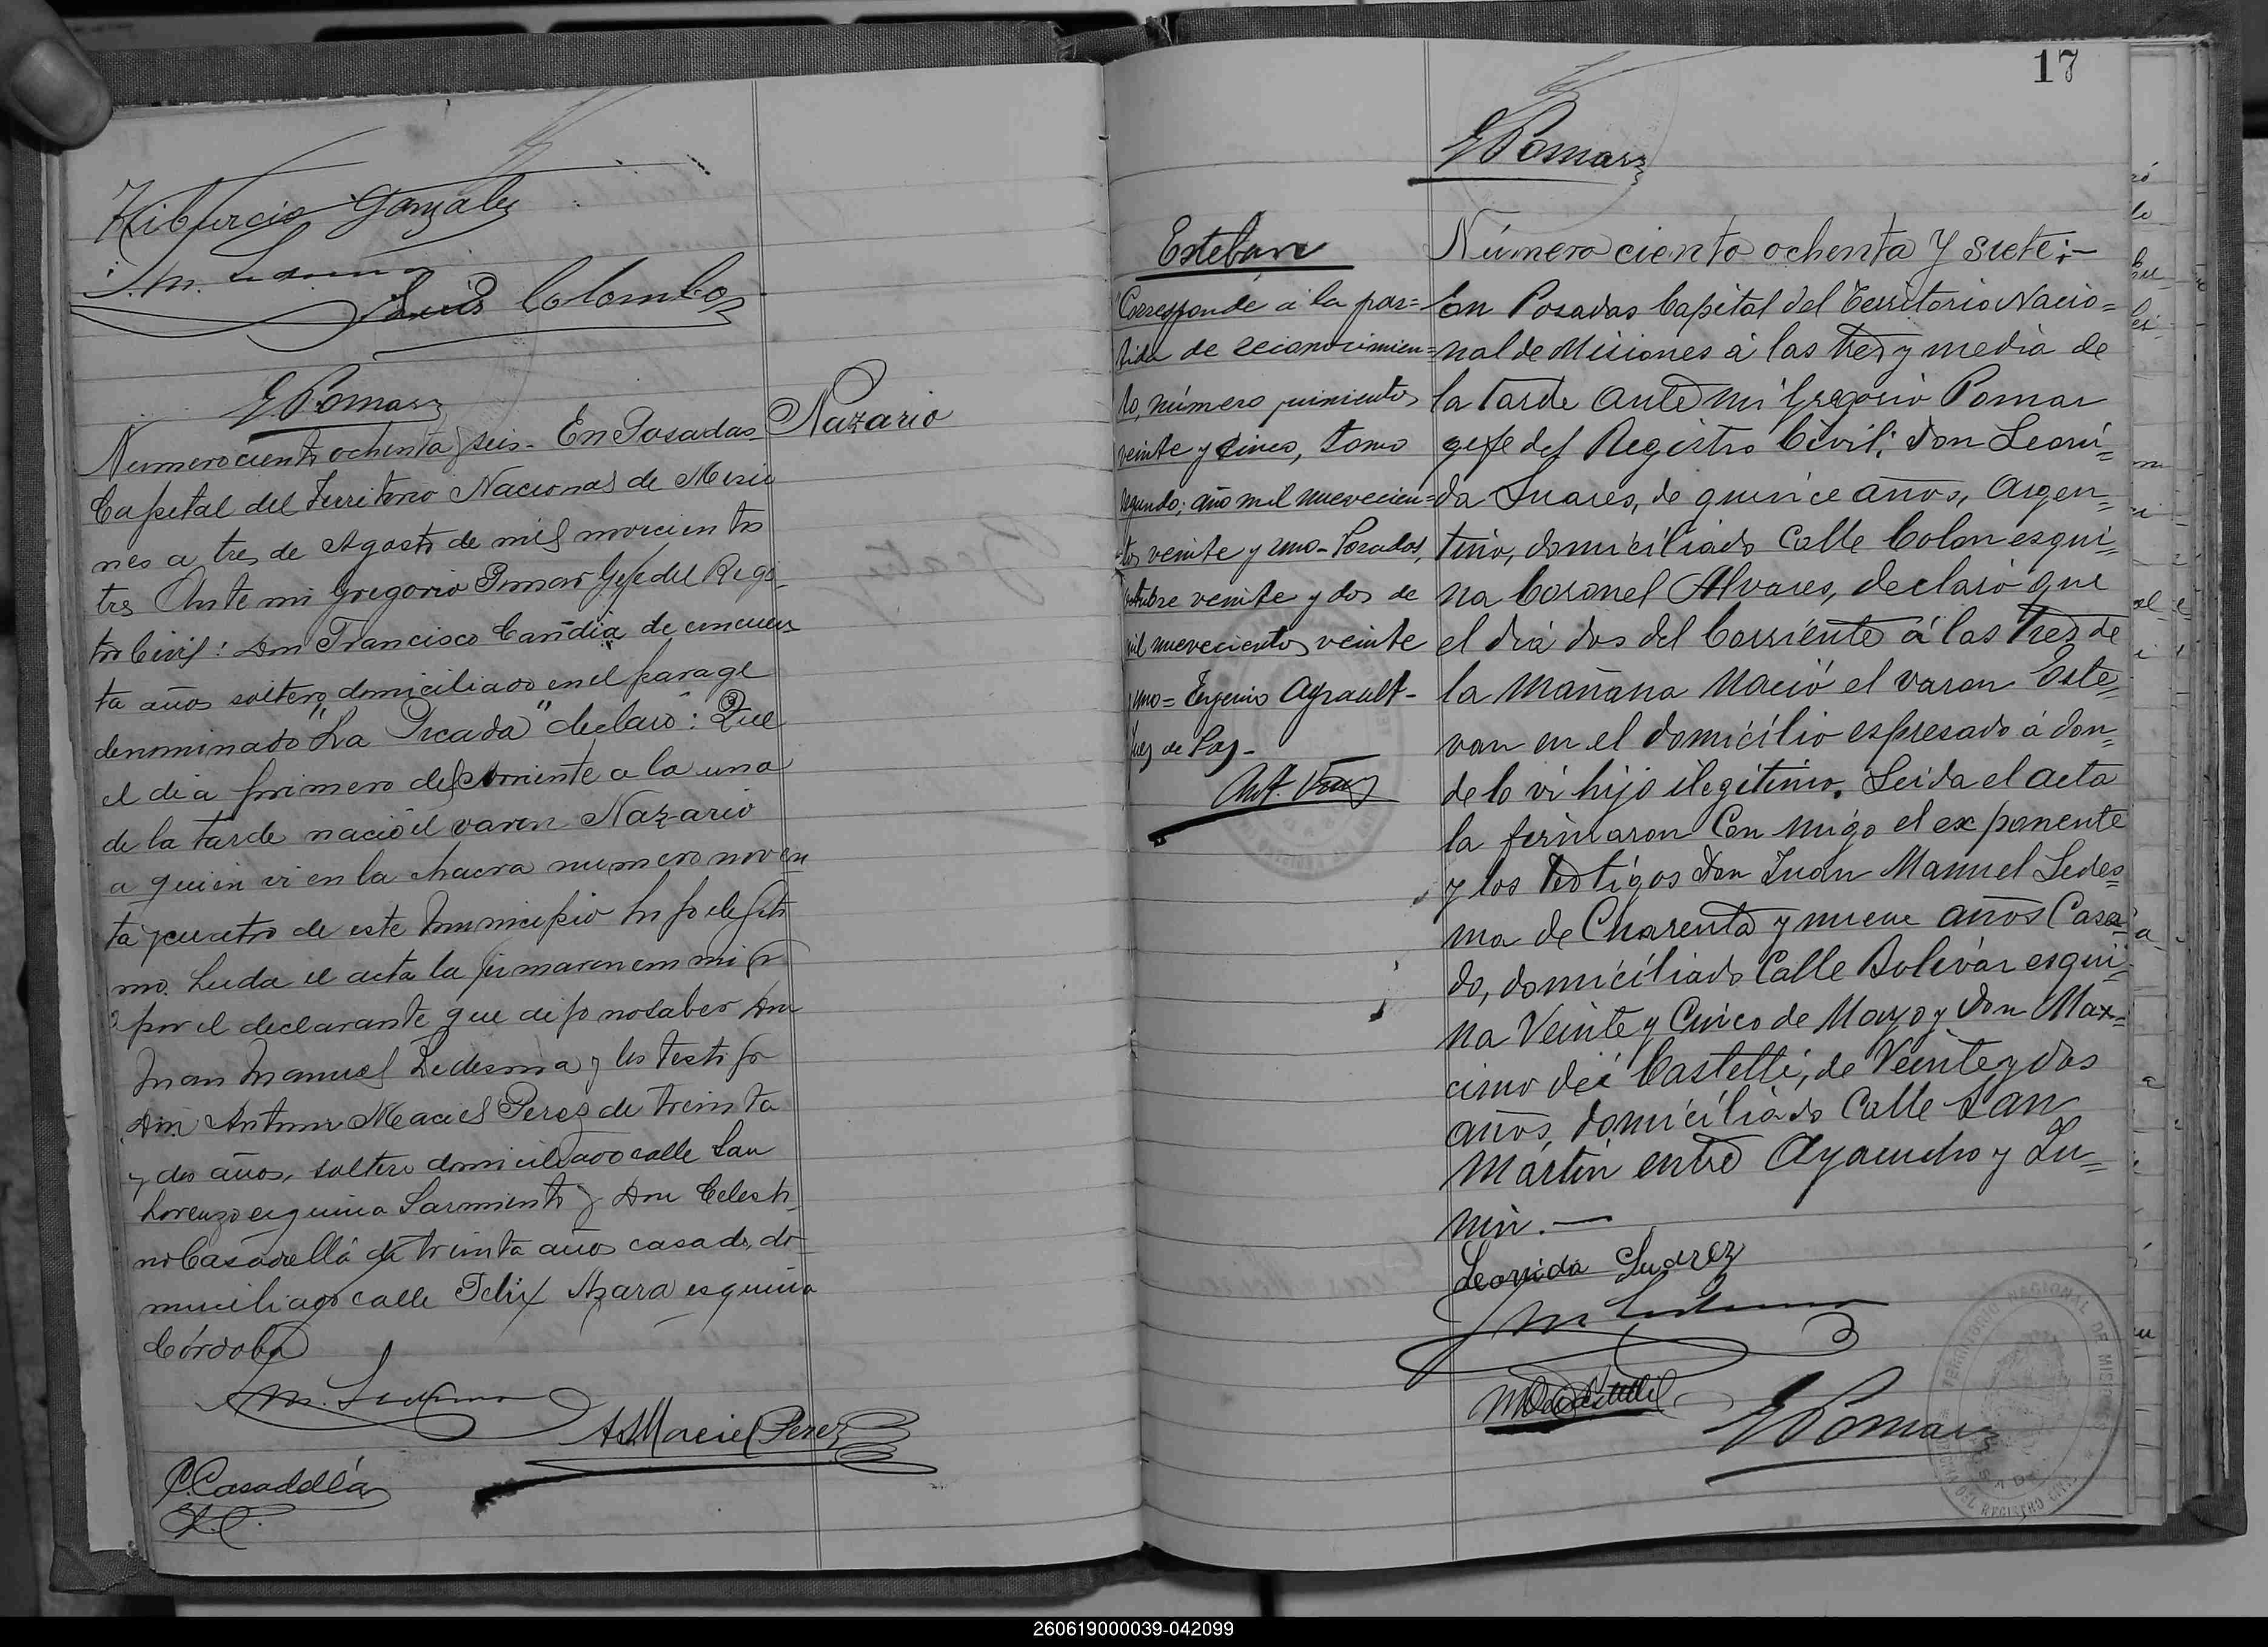 Tiburcio Gonzalez
J. M. Ledesma
Luis Colombo
G Pomar
Nazario
Numero ciento ochenta y seis - En Posadas
Capital del Territorio Nacional de Misio
nes a tres de Agosto de mil novecientos
tres Ante mi Gregorio Pomar Gefe del Regis
tro Civil: Don Francisco Candia de cincuen
ta años soltero domiciliado en el parage
denominado "La Picada" declaro: Que
el dia primero del corriente a la una
de la tarde nació el varon Nazario
a quien vi en la chacra numero noven
ta y cuatro de este Municipio hijo ilegiti
mo. Leida el acta la firmaron conmigo
por el declarante que dijo no saber Don
Juan Manuel Ledesma y los testigo
Don Antonio Maciel Perez de treinta
y dos años, soltero domiciliado calle San
Lorenzo esquina Sarmiento y Don Celesti
no Casadellá de treinta años casado, do
miciliado calle Felix Azara esquina
Córdoba
J M. Ledesma
A. Maciel Perez
C. Casadellá
17
G Pomar
Esteban
Corresponde á la par=
tida de reconocimien=
to, número quinientos
veinte y cinco, tomo
segundo; año mil novecien=
tos veinte y uno - Posadas,
Octubre veinte y dos de
mil novecientos veinte
y uno = Eugenio Ayrault -
Juez de Paz -
Número ciento ochenta y siete:-
En Posadas Capital del Territorio Nacio=
nal de Misiones á las tres y media de
la tarde ante mi Gregorio Pomar
gefe del Registro Civil: don Leoni=
da Suares, de quince años, Argen=
tino, domiciliado Calle Colon esqui=
na Coronel Alvares, declaró que
el dia dos del Corriente á las tres de
la mañana nació el varon Este=
van en el domicilio espresado á don=
de lo vi hijo ilegitimo. Leida el acta
la firmaron Con migo el exponente
y los testigos don Juan Manuel Ledes=
ma de Cuarenta y nueve años Casa=
do, domiciliado Calle Bolivar esqui=
na Veinte y Cinco de Mayo y don Max=
cimo dei Castelli, de Veinte y dos
años, domiciliado Calle San
Martin entre Ayacucho y Ju=
nin. —
Leonida Suarez
J M Ledesma
M Dei Castelli
G Pomar
TERRITORIO NACIONAL DE MISIONES
OFICINA DEL REGISTRO CIVIL
POSADAS
260619000039-042099